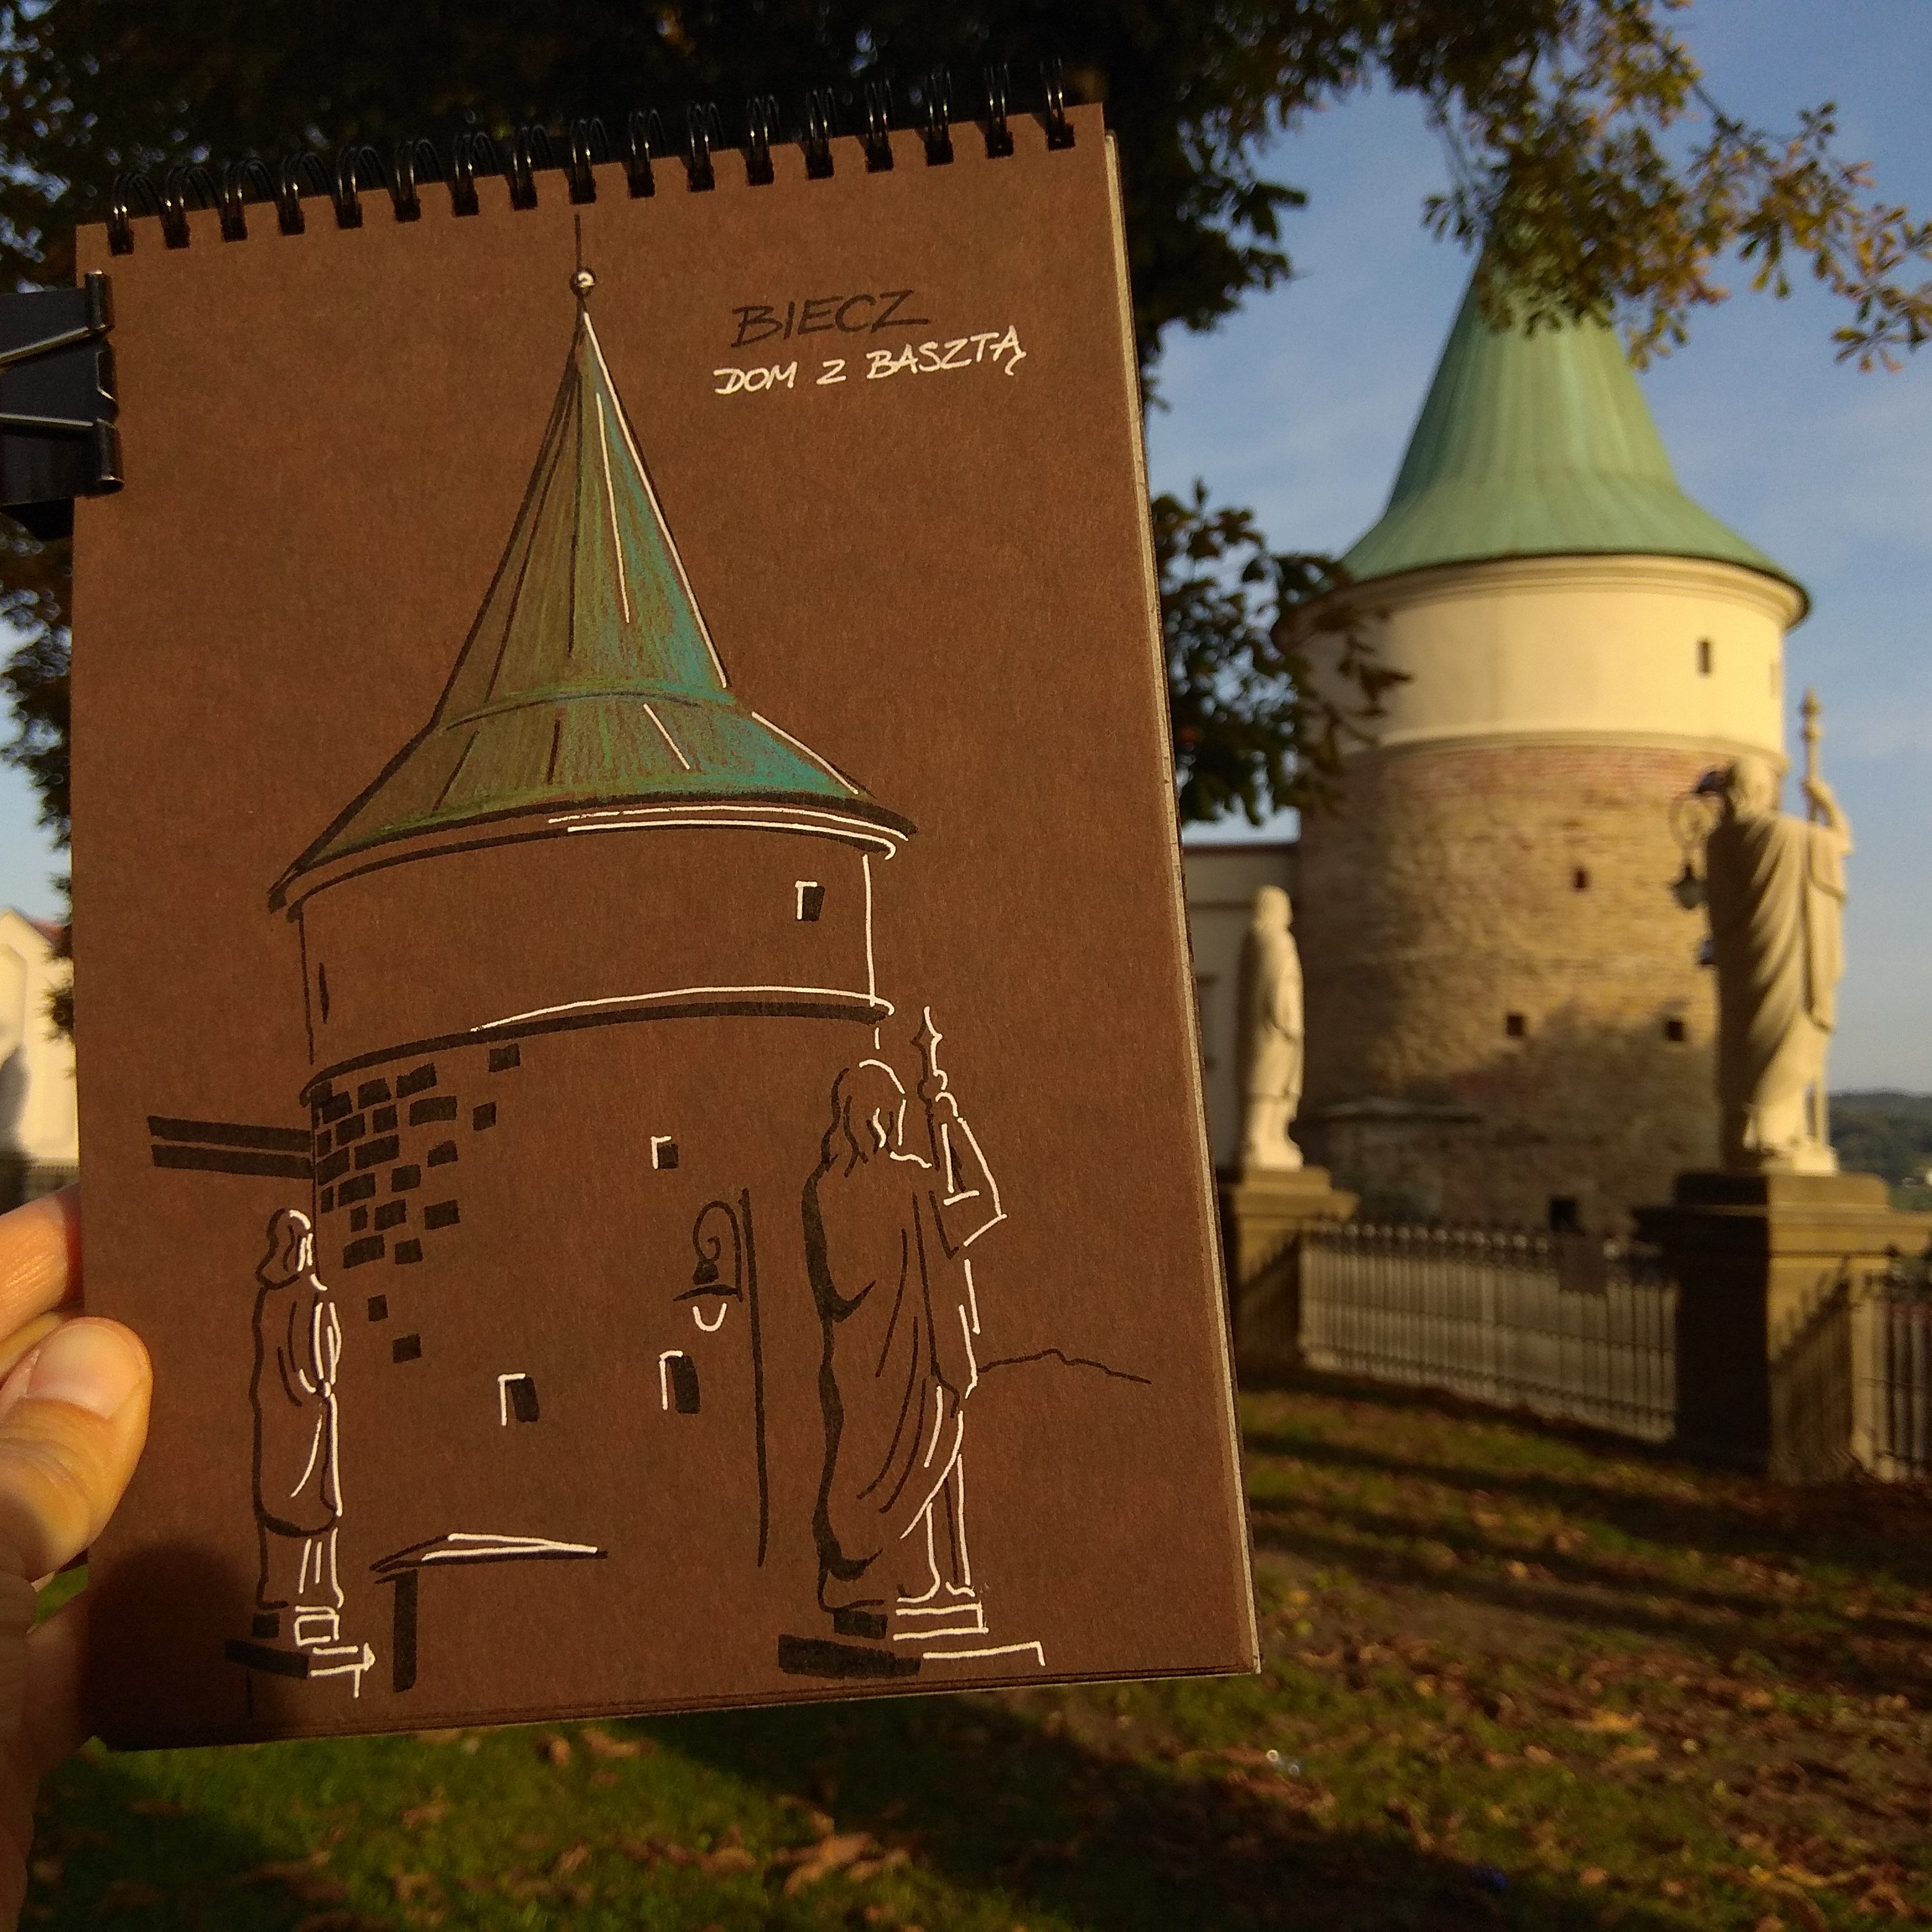 BIECZ
DOM Z BASZTĄ